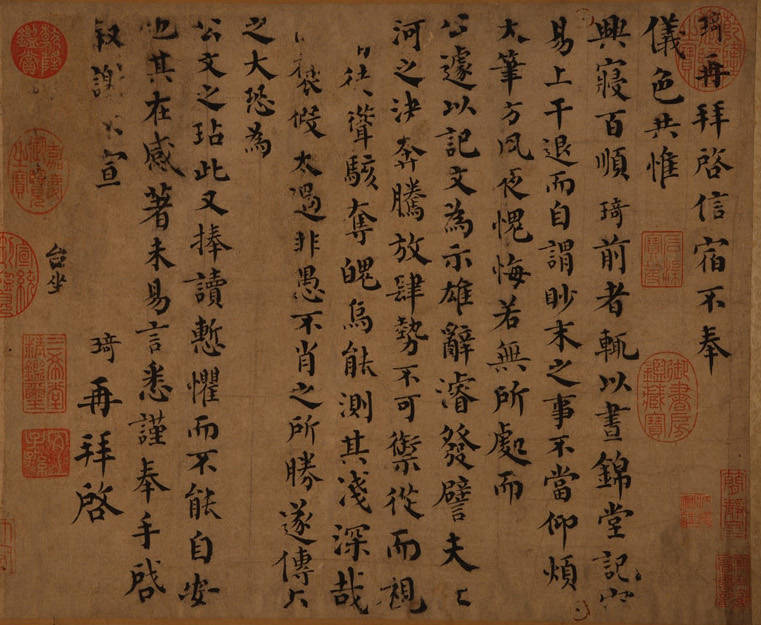 琦再拜啓信宿不奉
儀色共惟
興寢百順琦前者輒以晝錦堂記
易上干退而自謂眇末之事不當仰煩
大筆方夙夜愧悔若無所處而
公遽以記文為示雄辭濬發譬夫
河之決奔騰放肆勢不可禦從而視
徒聳駭奪魄烏能測其淺深哉
褒假太過非愚不肖之所勝遂傳
之大恐為
公文之玷此又捧讀慙懼而不能自安
也其在感著未易言悉謹奉手啟
叙謝不宣
琦再拜啓
台坐
石渠寶笈
御書房鑑藏寶
乾隆鑑賞
三希堂精鑑璽
宜子孫